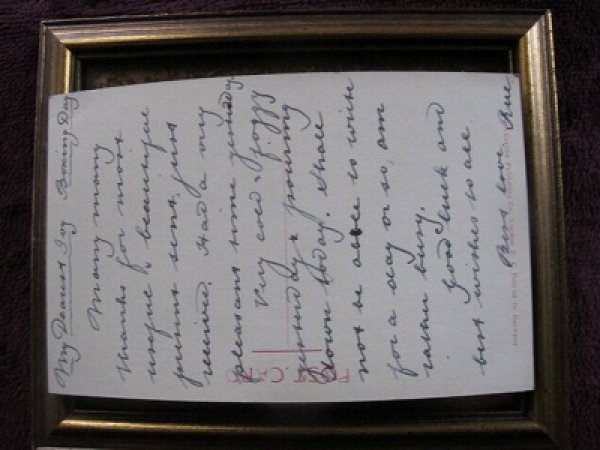 My Dearest Ivy Boxing Day
Many many
thanks for most
unique & beautiful
present sent, just
received. Had a very
pleasant time yesterday.
Very cold & foggy
yesterday & pouring
down today. Shall
not be able to write
for a day or so, am
rather busy.
Good luck and
best wishes to all.
Best love
POST CARD